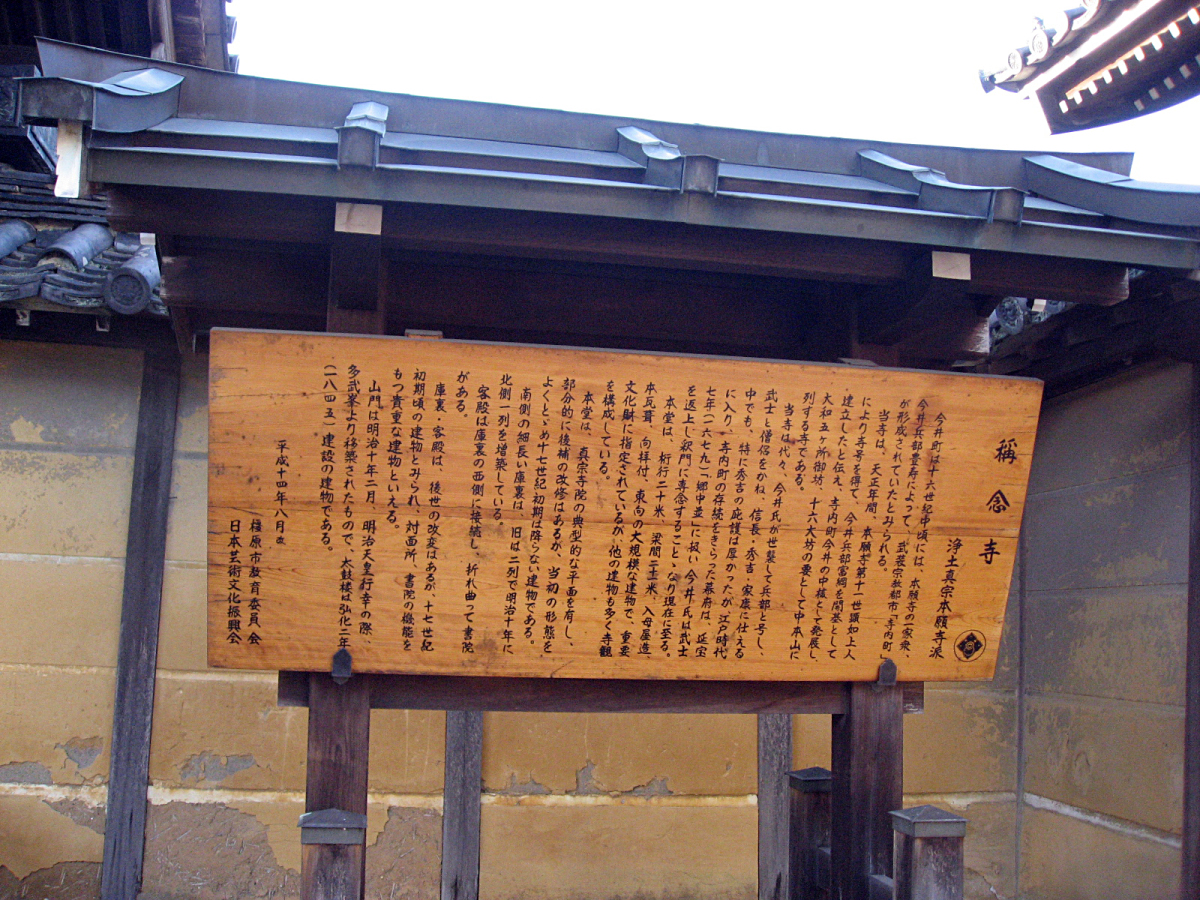 稱念寺
浄土真宗本願寺派
今井町は十六世紀中頃には、本願寺の一家衆、
今井兵部豊寿によって、武装宗教都市「寺内町」
が形成されていたとみられる。
当寺は、天正年間、本願寺第十一世顕如上人
により寺号を得て、今井兵部富綱を開基として
建立したと伝え、寺内町今井の中核として発展し、
大和五ヶ所御坊、十六大坊の要として中本山に
列する寺である。
当寺は代々、今井氏が世襲して兵部と号し、
武士と僧侶をかね、信長・秀吉・家康に仕える
中でも、特に秀吉の庇護は厚かったが、江戸時代
に入り、寺内町の存続をきらった幕府は、延宝
七年(一六七九)「郷中並」に扱い今井氏は武士
を返上し釈門に専念することゝなり現在に至る。
本堂は、桁行二十米、梁間二十一米、入母屋造、
本瓦葺、向拝付、東向の大規模な建物で、重要
文化財に指定されているが、他の建物も多く寺観
を構成している。
本堂は、真宗寺院の典型的な平面を有し、
部分的に後補の改修はあるが、当初の形態を、
よくとゞめ十七世紀初期は降らない建物である。
南側の細長い庫裏は、旧は二列で明治十年に
北側一列を増築している。
客殿は庫裏の西側に接続し、折れ曲って書院
がある。
庫裏、客殿は、後世の改変はあるが、十七世紀
初期頃の建物とみられ、対面所、書院の機能を
もつ貴重な建物といえる。
山門は明治十年二月、明治天皇行幸の際、
多武峯より移築されたもので、太鼓楼は弘化二年
(一八四五)建設の建物である。
平成十四年八月改
橿原市教育委員会
日本芸術文化振興会